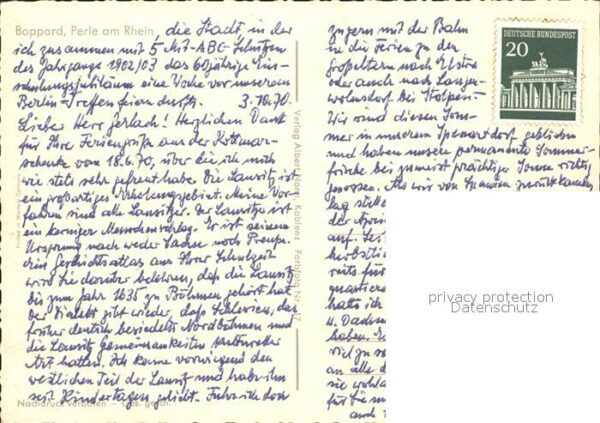 Boppard, Perle am Rhein, die Stadt, in der
ich zusammen mit 5 Mit-ABC-Schützen
des Jahrgangs 1902/03 das 60jährige Ein-
schulungsjubiläum eine Woche vor unserem
Berlin-Treffen feiern durfte. 3.10.70.
Lieber Herr Gerlach! Herzlichen Dank
für Ihre Feriengrüße aus der Kottmar-
schenke vom 18.6.70, über die ich mich
wie stets sehr gefreut habe. Die Lausitz ist
ein großartiges Erholungsgebiet. Meine Vor-
fahren sind alle Lausitzer. Der Lausitzer ist
ein kerniger Menschenschlag. Er ist seinem
Ursprung nach weder Sachse noch Preuße.
Ein Geschichtsatlas aus Ihrer Schulzeit
wird Sie darüber belehren, daß die Lausitz
bis zum Jahr 1635 zu Böhmen gehört hat.
Der Dialekt gibt wieder, daß Schlesien, das
früher deutsch besiedelte Nordböhmen und
die Lausitz Gemeinsamkeiten
Art hatten. Ich kenne vorwiegend den
westlichen Teil der Lausitz und habe ihn
seit Kindertagen geliebt. Fuhr ich doch
Nachdruck verboten - Ges. gesch.
Verlag Albert Koblenz Farbfoto Nr.
zugern mit der Bahn
in die Ferien zu den
Großeltern nach Elstra
oder auch nach Langen-
wolmsdorf bei Stolpen.
Wir sind diesen Som-
mer in unserem Spessartdorf geblieben
und haben unsere permanente Sommer-
frische bei zumeist prächtiger Sonne richtig
genossen. Als wir von Spanien zurückkamen,
lag
der
auf.
herbstli
reits für
quartier
hatte ich
4. Dachses
haben.
viel zu
an alle
sie wohl
für Sie
auch
DEUTSCHE BUNDESPOST
20
privacy protection
Datenschutz